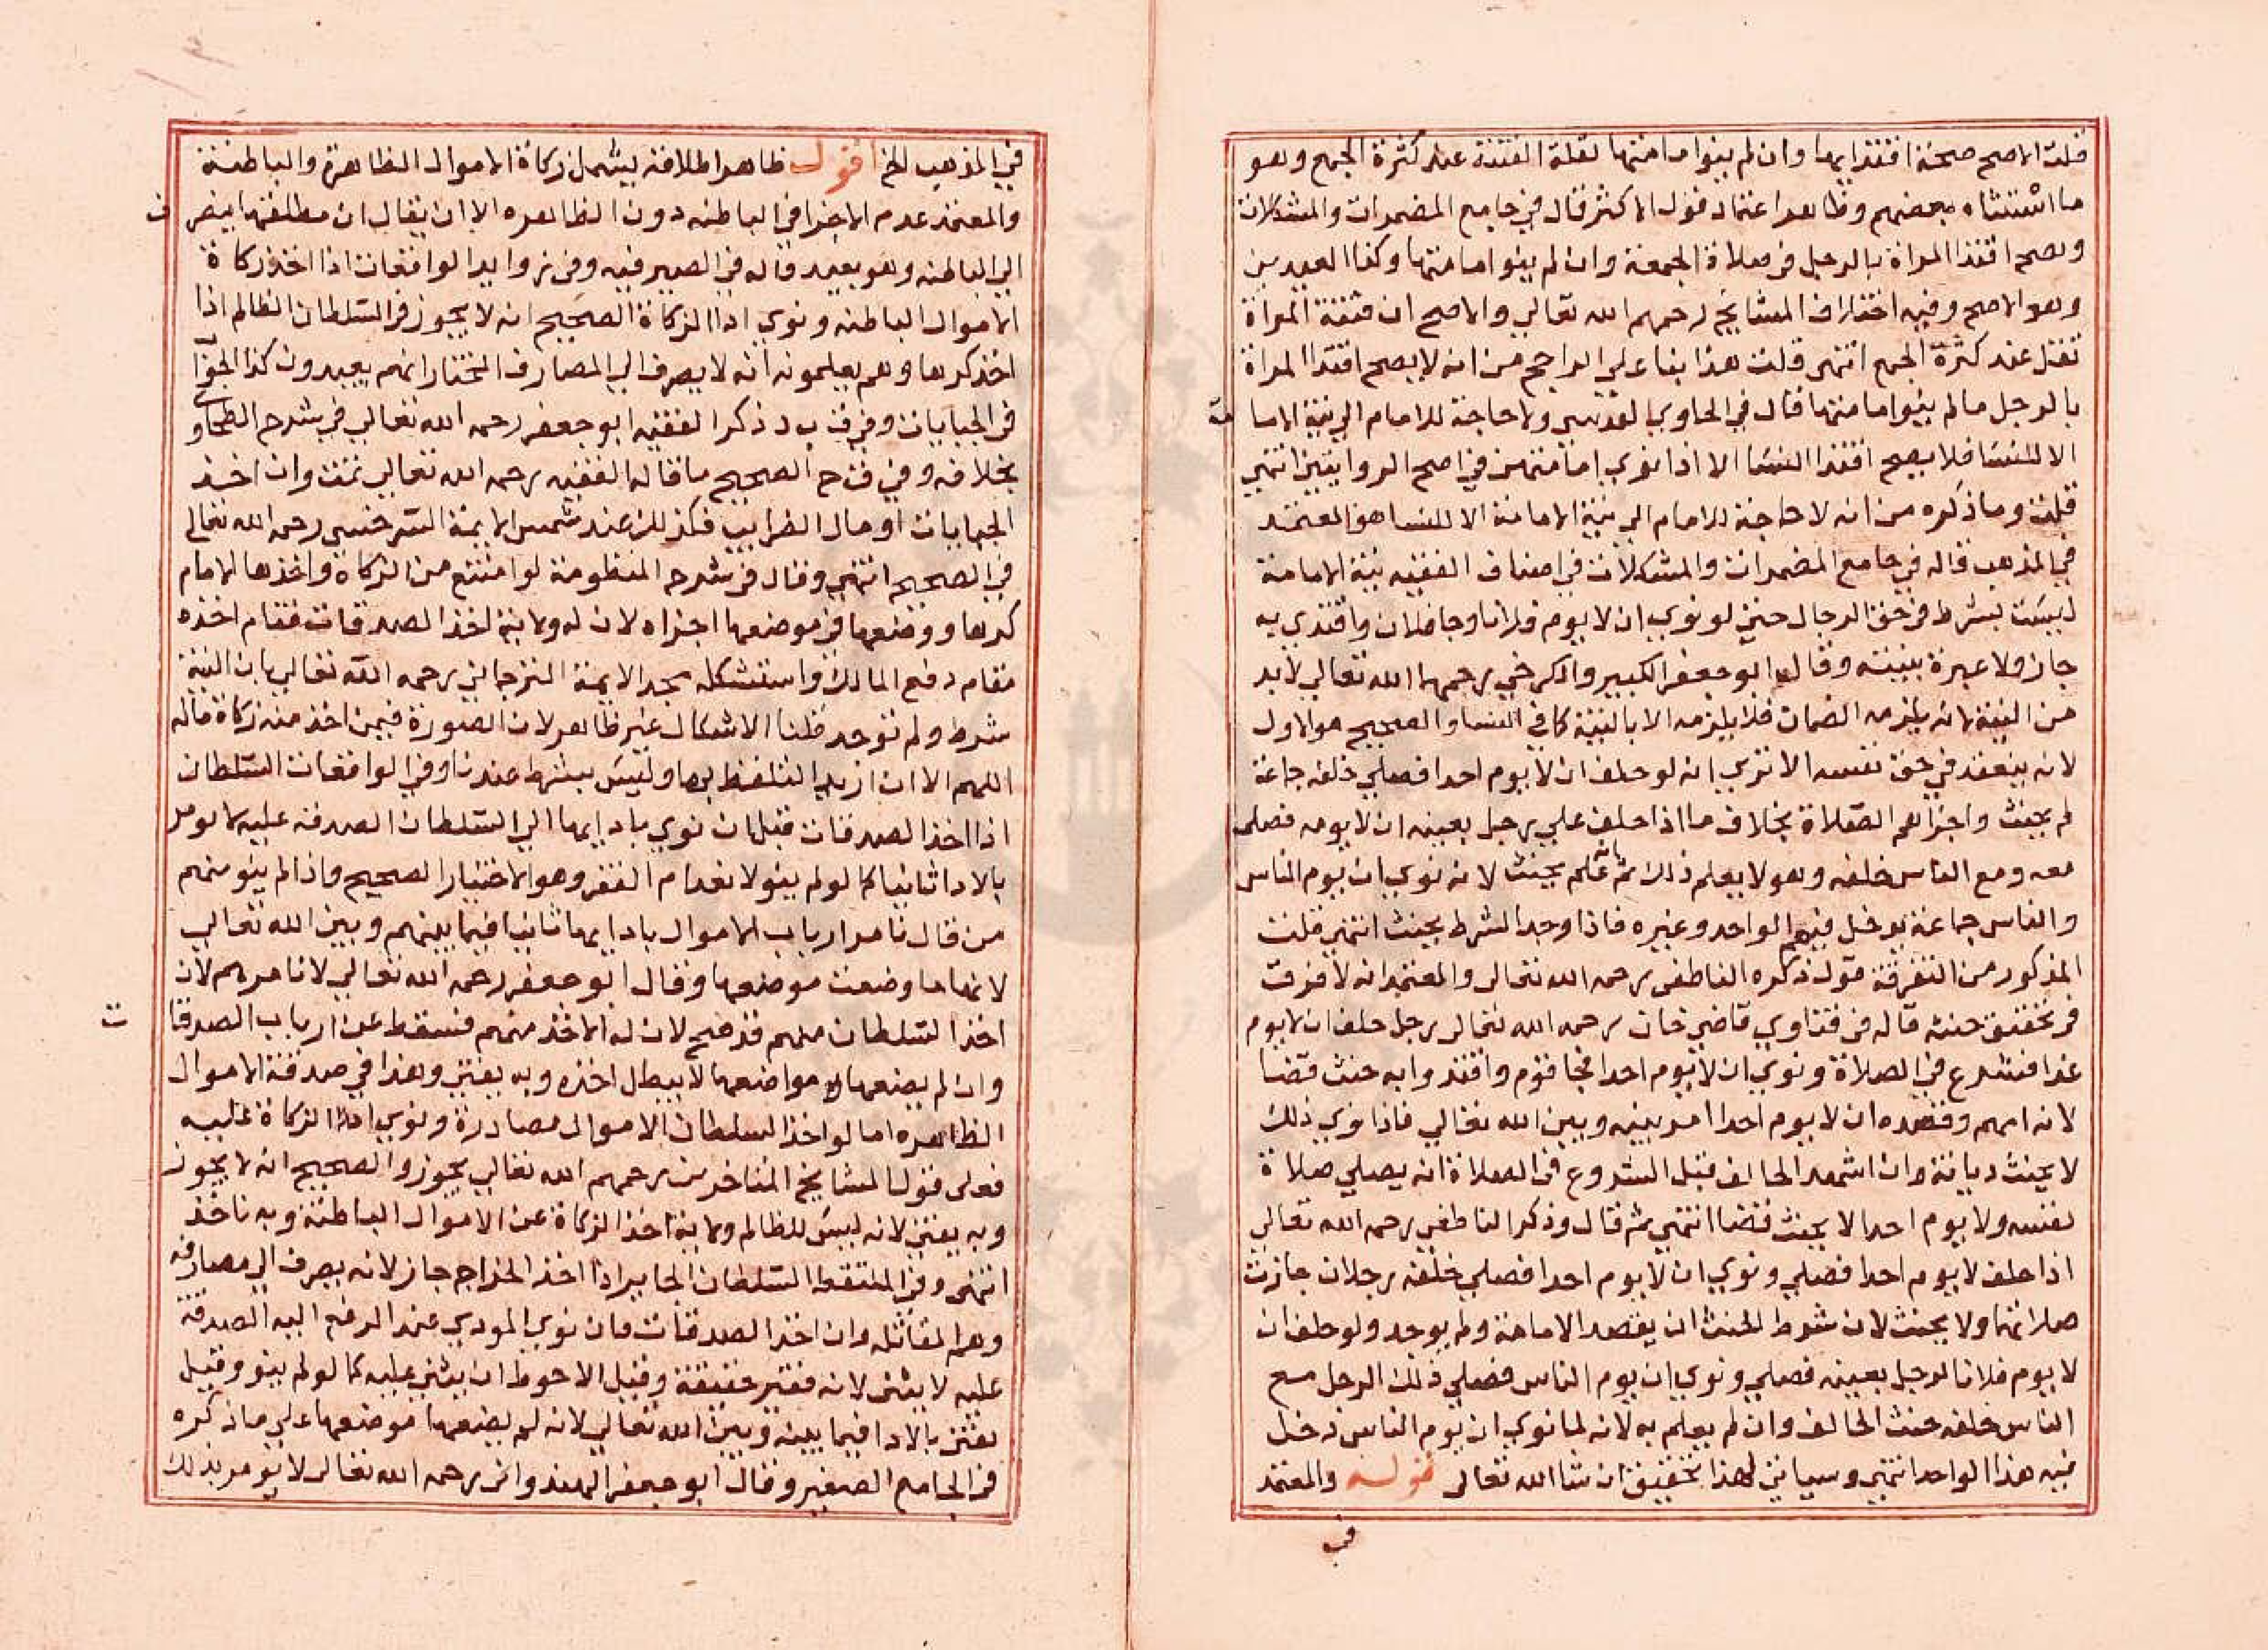 قلت الاصح صحة اقتدايها وان لم ينوا مامتها لقلة الفتنة عند كثرة الجمع وهو
ما استثناه بعضهم وظاهرا عتماد قول الاكثر قال في جامع المضمرات والمشكلات
ويصح اقتدا المراة بالرجل في صلاة الجمعة وان لم ينو امامتها وكذا العيدين
وهو الاصح وفيه اختلاف المشايخ رحمهم الله تعالي والاصح ان فتنة المراة
تقل عند كثرة الجمع انتهى قلت هذا بنا على الراجح من انه لا يصح اقتدا المراة
بالرجل ما لم ينوا مامتها قال في الحاوي القدسي ولا حاجة للامام الي نية الاما
مة
الا للنسا فلا يصح اقتدا النسا الا اذا نوي امامتهن في اصح الروايتين انتهي
قلت وما ذكره من انه لا حاجة للامام الي نية الامامة الا للنسا هو المعتمد
في المذهب قاله في جامع المضمرات والمشكلات في اصناف الفقيه نية الامامة
ليست بشرط في حق الرجال حتي لو نوي ان لا يوم فلانا وجا فلان واقتدي به
جاز ولا عبرة بنيته وقال ابو جعفر الكبير والكرخي رحمهما الله تعالي لابد
من النية لانه يلزمه الضمان فلا يلزمه الا بالنية كما في النسا والصحيح هو الاول
لانه ينعقد في حق نفسه الا تري انه لو حلف ان لا يوم احدا فصلي خلفه جماعة
لم يحنث واجزاهم الصلاة بخلاف ما اذا حلف علي رجل بعينه ان لا يومه فصلي
معه ومع الناس خلفه وهو لا يعلم ذلك ثم علم يحنث لانه نوي ان يوم الناس
والناس جماعة يدخل فيهم الواحد وغيره فاذا وجد الشرط يحنث انتهي قلت
المذكور من التفرقة قول ذكره الناطفي رحمه الله تعالى والمعتمد انه لا فرق
في تحقق حنثه قاله في فتاوي قاضي خان رحمه الله تعالى رجل حلف ان لا يوم
غدا فشرع في الصلاة ونوي ان لا يوم احدا فجا قوم واقتدوا به حنث قضا
لانه امهم وقصده ان لا يوم احدا امر بينه وبين الله تعالي فاذا نوي ذلك
لا يحنث ديانة وان اشهد الحالف قبل الشروع في الصلاة انه يصلي صلاة
نفسه ولا يوم احدا لا يحنث قضا انتهي ثم قال وذكر الناطفي رحمه الله تعالي
اذا حلف لا يوم احدا فصلي ونوي ان لا يوم احدا فصلي خلفه رجلان جازت
صلاتهما ولا يحنث لان شرط الحنث ان يقصد الامامة ولم يوجد ولو حلف ان
لا يوم فلانا لرجل بعينه فصلي ونوي ان يوم الناس فصلي ذلك الرجل مع
الناس خلفه حنث الحالف وان لم يعلم به لانه لما نوي ان يوم الناس دخل
فيه هذا الواحد انتهي وسياتي لهذا تحقيق ان شا الله تعالى قوله والمعتمد
في
في المذهب الخ اقول ظاهر اطلاقه يشمل زكاة الاموال الظاهرة والباطنة
والمعتمد عدم الاجزا في الباطنه دون الظاهره الا ان يقال ان مطلقها ينصر
ف
الي الباطنه وهو بعيد قاله في الصيرفيه وفي زوايد الواقعات اذا اخذ زكاة
الاموال الباطنه ونوي ادا الزكاة الصحيح انه لا يجوز في السلطان الظالم اذا
اخذ كرها وهم يعلمون انه لا يصرف الي المصارف المختار انهم يعيدون كذا الجوا
في الجبايات وفي ق ب د ذكر الفقيه ابو جعفر رحمه الله تعالي في شرح الطحاو
بخلافه وفي ق ح الصحيح ما قاله الفقيه رحمه الله تعالي تمت وان اخذ
الجبايات او مال الضرايب فكذلك عند شمس الايمة السرخسي رحمه الله تعالي
في الصحيح انتهي وقال في شرح المنظومة لو امتنع من الزكاة واخذها الامام
كرها ووضعها في موضعها اجزاه لان له ولاية اخذ الصدقات فقام اخذه
مقام دفع المالك واستشكله مجد الايمة الترجماني رحمه الله تعالي بان النية
شرط ولم توجد قلنا الاشكال غير ظاهر لان الصورة فيمن اخذ منه زكاة ماله
اللهم الا ان اريد التلفظ بها وليس بشرط عندنا وفي الواقعات السلطان
اذا اخذ الصدقات قيل ان نوي بادايها الي السلطان الصدقة عليه لا يومر
بالادا ثانيا كما لو لم ينو لانعدام الفقر وهو الاختيار الصحيح واذا لم ينو منهم
من قال تامر ارباب الاموال بادايها ثانيا فيما بينهم وبين الله تعالي
لانها ما وضعت موضعها وقال ابو جعفر رحمه الله تعالي لا نامرهم لان
اخذ السلطان منهم قد صح لان له الاخذ منهم فسقط عن ارباب الصدقا
ت
وان لم يضعها مواضعها لا يبطل اخذه وبه يفتي وهذا في صدقة الاموال
الظاهره اما لو اخذ السلطان الاموال مصادرة ونوي ادا الزكاة عليه
فعلى قول المشايخ المتاخرين رحمهم الله تعالي يجوز والصحيح انه لا يجوز
وبه يفتي لانه ليس للظالم ولاية اخذ الزكاة عن الاموال الباطنة وبه ناخذ
انتهي وفي الملتقط السلطان الجاير اذا اخذ الخراج جاز لانه يصرف الي مصارفه
وهم المقاتله وان اخذ الصدقات فان نوي المودي عند الدفع اليه الصدقة
عليه لا يثني لانه فقير حقيقة وقيل الاحوط ان يثني عليه كما لو لم ينو وقيل
يفتي بالادا فيما بينه وبين الله تعالي لانه لم يضعها موضعها علي ما ذكره
في الجامع الصغير وقال ابو جعفر الهندواني رحمه الله تعالى لا يومر بذلك